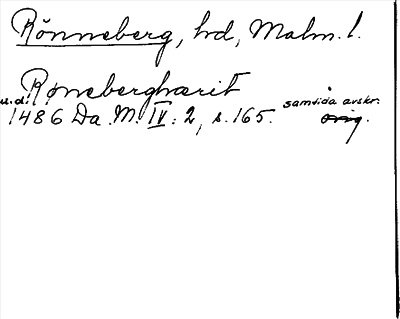 Rönneberg, hd, Malm. l.
Røneberghærit
u.d. samtida avskr.
1486 Da. M. IV: 2, s. 165. orig.